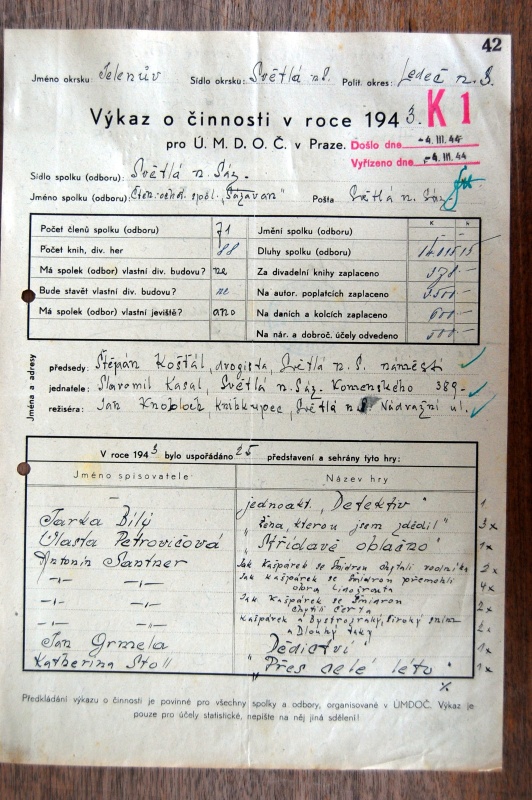 42
Jméno okrsku: Jelenův Sídlo okrsku: Světlá n/S. Polit. okres: Ledeč n. S.
Výkaz o činnosti v roce 1943. K 1
pro Ú. M. D. O. Č. v Praze. Došlo dne -4. III. 44
Vyřízeno dne -4. III. 44
Sídlo spolku (odboru): Světlá n. Sáz.
Jméno spolku (odboru): Čten. ochot. spol. "Sázavan" Pošta Světlá n. Sáz.
Počet členů spolku (odboru) 71 Jmění spolku (odboru) -
Počet knih, div. her 88 Dluhy spolku (odboru)
Má spolek (odbor) vlastní div. budovu? ne Za divadelní knihy zaplaceno 378.-
Bude stavět vlastní div. budovu? ne Na autor. poplatcích zaplaceno 3500.-
Má spolek (odbor) vlastní jeviště? ano Na daních a kolcích zaplaceno 600.-
Na nár. a dobroč. účely odvedeno 500.-
Jména a adresy
předsedy: Štěpán Košťál, drogista, Světlá n. S. náměstí
jednatele: Slavomil Kasal, Světlá n. Sáz. Komenského 389.-
režiséra: Jan Knobloch, knihkupec, Světlá n. S. Nádražní ul.
V roce 1943 bylo uspořádáno 25 představení a sehrány tyto hry:
Jméno spisovatele Název hry
- jednoakt. "Detektiv" 1
Jarka Bílý "Žena, kterou jsem zdědil" 3x
Vlasta Petrovičová "Střídavě oblačno" 1x
Antonín Santner Jak Kašpárek se Šmidrou chytali vodníka 2x
-"- -"- Jak Kašpárek se Šmidrou přemohli obra 4x
-"- -"- Jak Kašpárek se Šmidrou chytili čerta 2x
-"- -"- Kašpárek a Bystrozraký, Široký
a Dlouhý taky
Jan Grmela "Dědictví" 1x
Katherina Stoll "Přes celé léto" 1x
Předkládání výkazu o činnosti je povinné pro všechny spolky a odbory, organisované v ÚMDOČ. Výkaz je
pouze pro účely statistické, nepište na něj jiná sdělení!